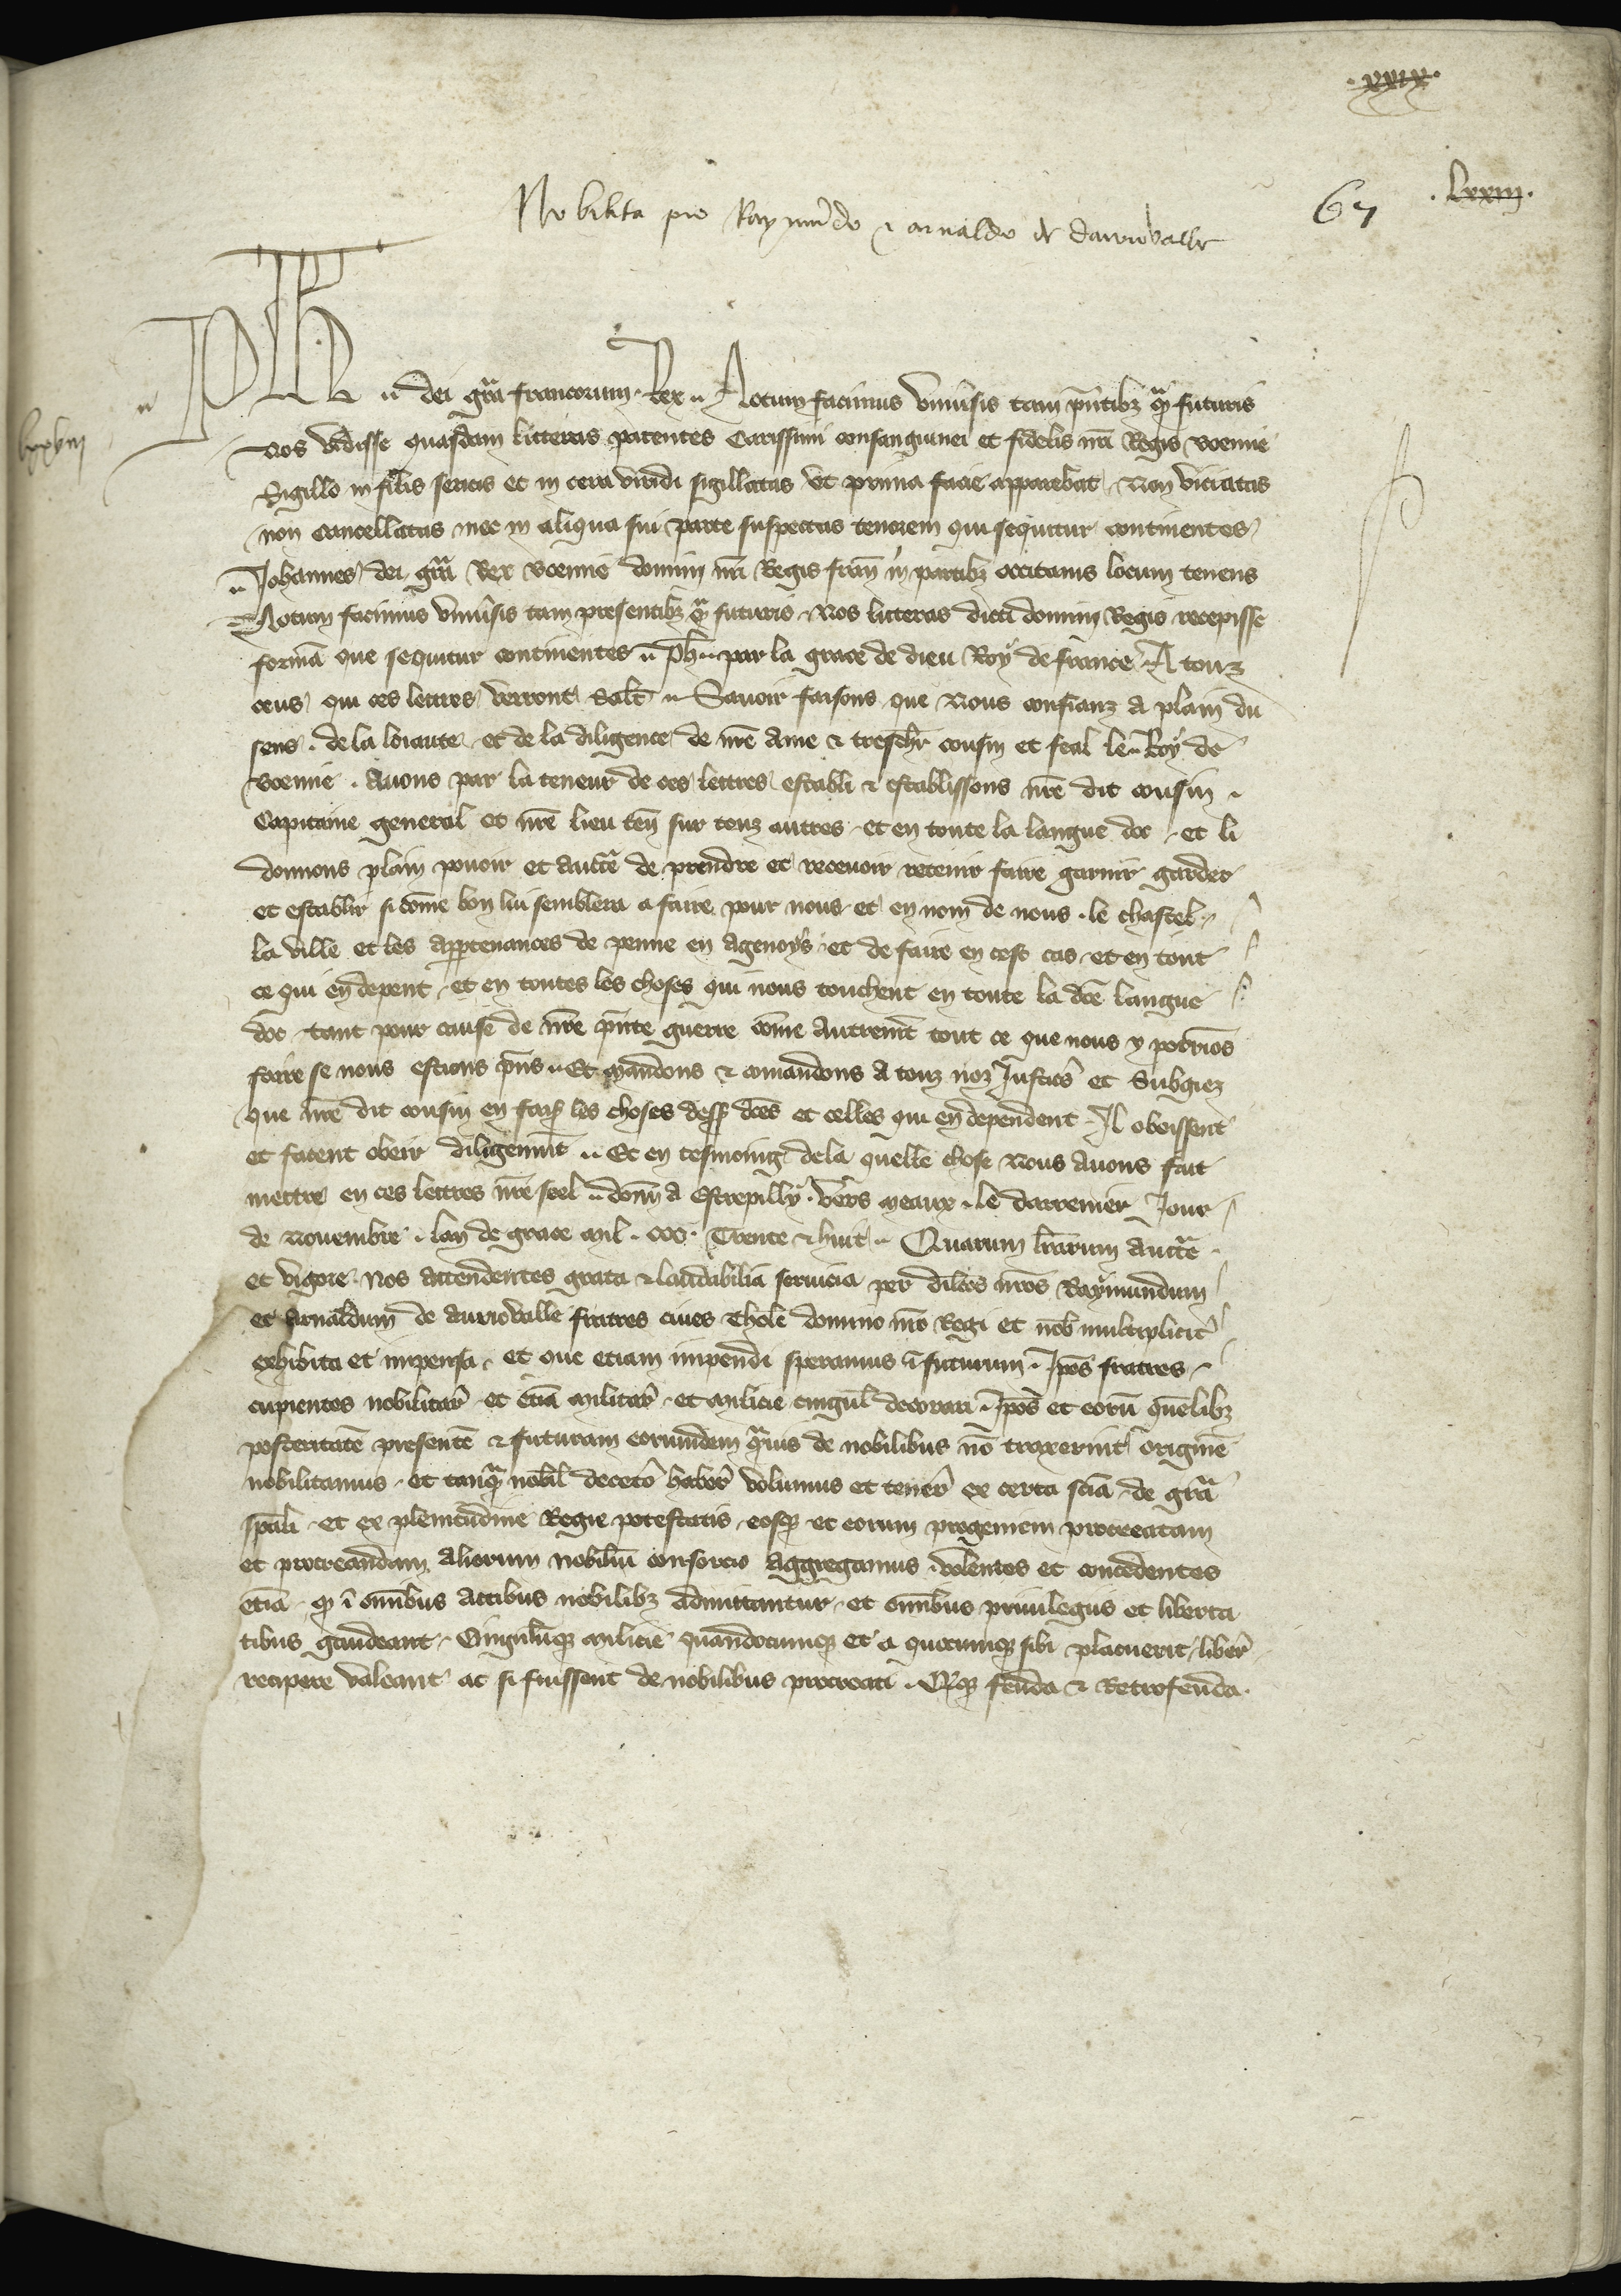 .xxix.
.lxxiij.
67
Nobilita pro Raymūdo & arnaldo de daurivalle
lxxviij
Ph .. dei grā francorum Rex .. Notum facimus Vniūsis tam pn̄tibz qᵃ futuris
Nos vidisse quasdam litteras patentes Carissimi consanguinei et fidelis nrī Regis boemie
Sigillo in filis sericis et in cera viridi sigillatas vt prima facie apparebat Non viciatas
non cancellatas nec in aliqua sui parte suspectas tenorem qui sequitur continentes
Johannes dei grā Rex boemie domini nrī Regis fran̄ in partibz occitanis locum tenens
Notum facimus vniūsis tam presentibz qᵃ futuris Nos litteras dicti domini Regis recepisse
formā que sequitur continentes .. Ph̄ .. par la grace de dieu Roy de france A touz
ceus qui ces lettres verront Salt̄ .. Sauoir faisons que Nous confianz a plain du
sens . de la loiaute et de la diligence de nrē Ame & treschr̄ cousin et feal le Roy de
boemie . Auons par la teneur de ces lettres establi & establissons nrē dit cousin .
Capitaine general et nrē lieu ten̄ sur touz autres et en toute la langue doc et li
donnons plain pouoir et auctē de prendre et receuoir retenir faire garnir garder
et establir si cōme bon lui semblera a faire pour nous et en nom de nous . le chastel
la ville et les appartenances de penne en agenoys et de faire en cest cas et en tout
ce qui en depent et en toutes les choses qui nous touchent en toute la dcē langue
doc tant pour cause de nrē pn̄te guerre cōme autremt̄ tout ce que nous y porriōs
faire se nous estions pn̄s .. Et mandons & comandons a touz noz Justic̄ et Subgiez
que nrē dit cousin en fais̄ les choses dess̄ dcēs et celles qui en dependent Il obeissent
et facent obeir diligenmt̄ .. Et en tesmoing de la quelle chose Nous auons fait
mettre en ces lettres nrē seel .. donn̄ a Estrepilly . vers meaux . le darrenier Jour
de Nouembre . lan de grace mil . ccc . Trente & huit .. Quarum lrārum auctē
et vigore Nos attendentes grata & laudabilia seruicia per dilcōs nrōs Raymundum
et Arnaldum de aurivalle fratres ciues Tholē domino nrō Regi et nob̄ multiplicit̄
exhibita et impensa . et que etiam impendi speramus ī futurum . Ip̄os fratres
cupientes nobilitar̄ et etiā militar̄ et milicie cingul̄ decorari . Ip̄os et eorū quēlibz
posteritatē presentē & futuram eorumdem qᵃuis de nobilibus nō traxerint originē
nobilitamus et tanqᵃ nobil̄ decetō haber̄ volumus et tener̄ ex certa sciā de grā
spāli et ex plenitudine Regie potestatis eosqz et eorum progeniem procreatam
et procreandam aliorum nobiliū consorcio Aggregamus volentes et concedentes
etiā qz ī om̄ibus actibus nobilibz admittantur et om̄ibus priuilegiis et liberta
tibus gaudeant Cingulūqz milicie quandocumqz et a quocumqz sibi placuerit liber̄
recipere valeant ac si fuissent de nobilibus procreati . Qz feuda & Retrofeuda .